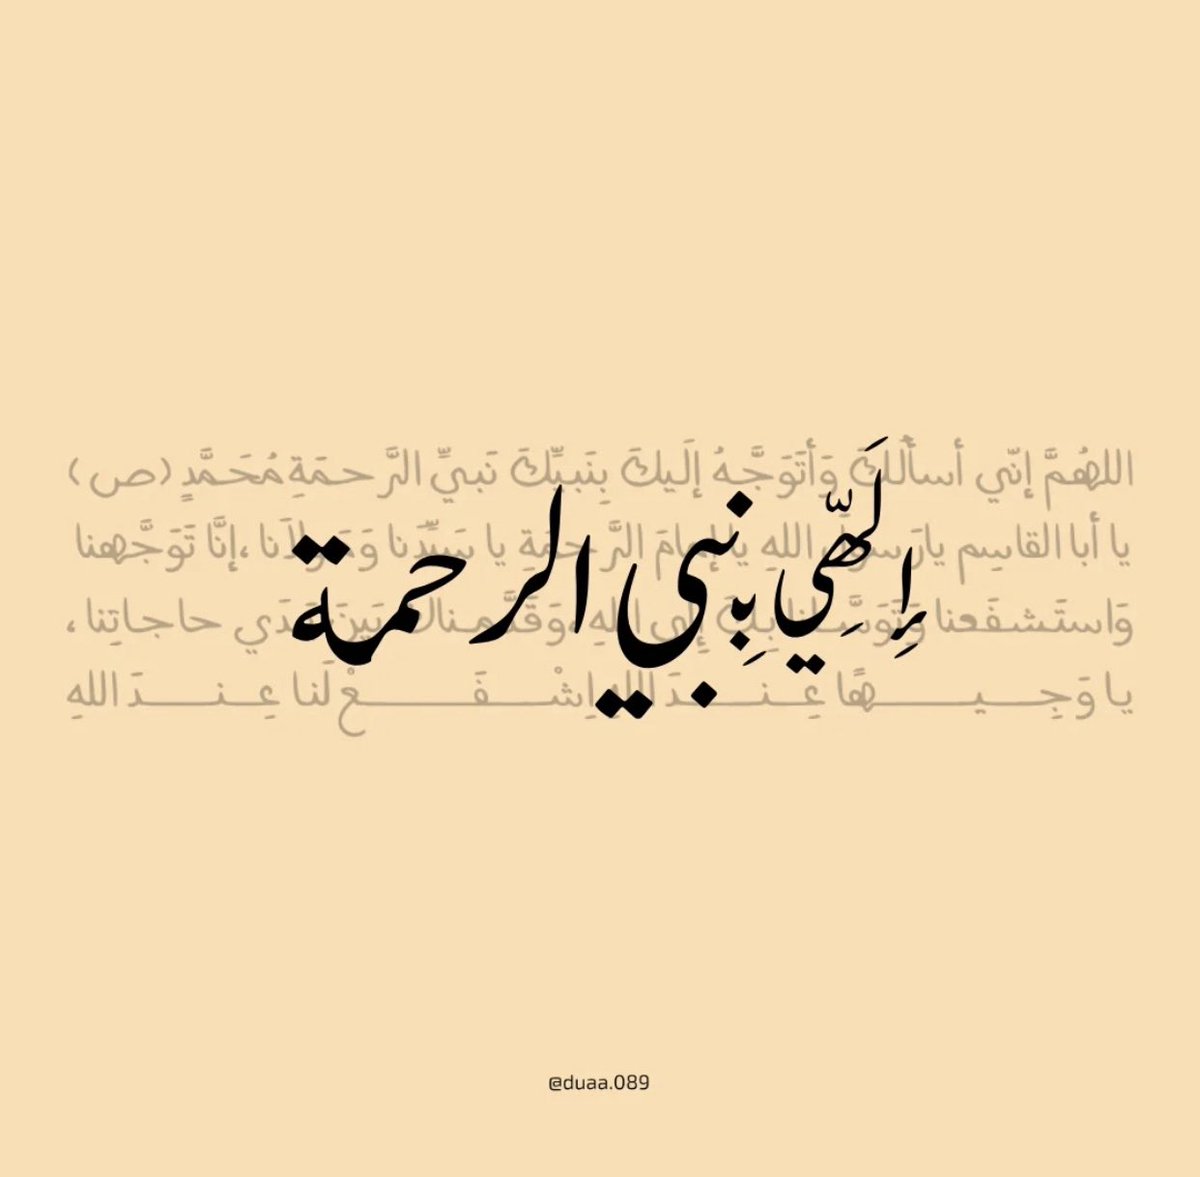 اللهُمَّ إنّي أسألُكَ وَأتَوَجَّهُ إلَيكَ بِنَبيِّكَ نَبيِّ الرَّحمَةِ مُحَمَّدٍ (ص)
يا أبا القاسِم يارَسولَ اللهِ يا إمامَ الرَّحمَةِ يا سَيِّدَنا وَمَولَانا ،إنَّا تَوَجَّهنا
وَاستَشفَعنا وَتَوَسَّلنا بِكَ إلى اللهِ ،وَقَدَّمناكَ بَينَ يَدَي حاجاتِنا ،
يا وَجِيهًا عِندَ اللهِ اِشْفَعْ لَنا عِندَ اللهِ
إِلَهِّي بِنبي الرحمة
@duaa.089